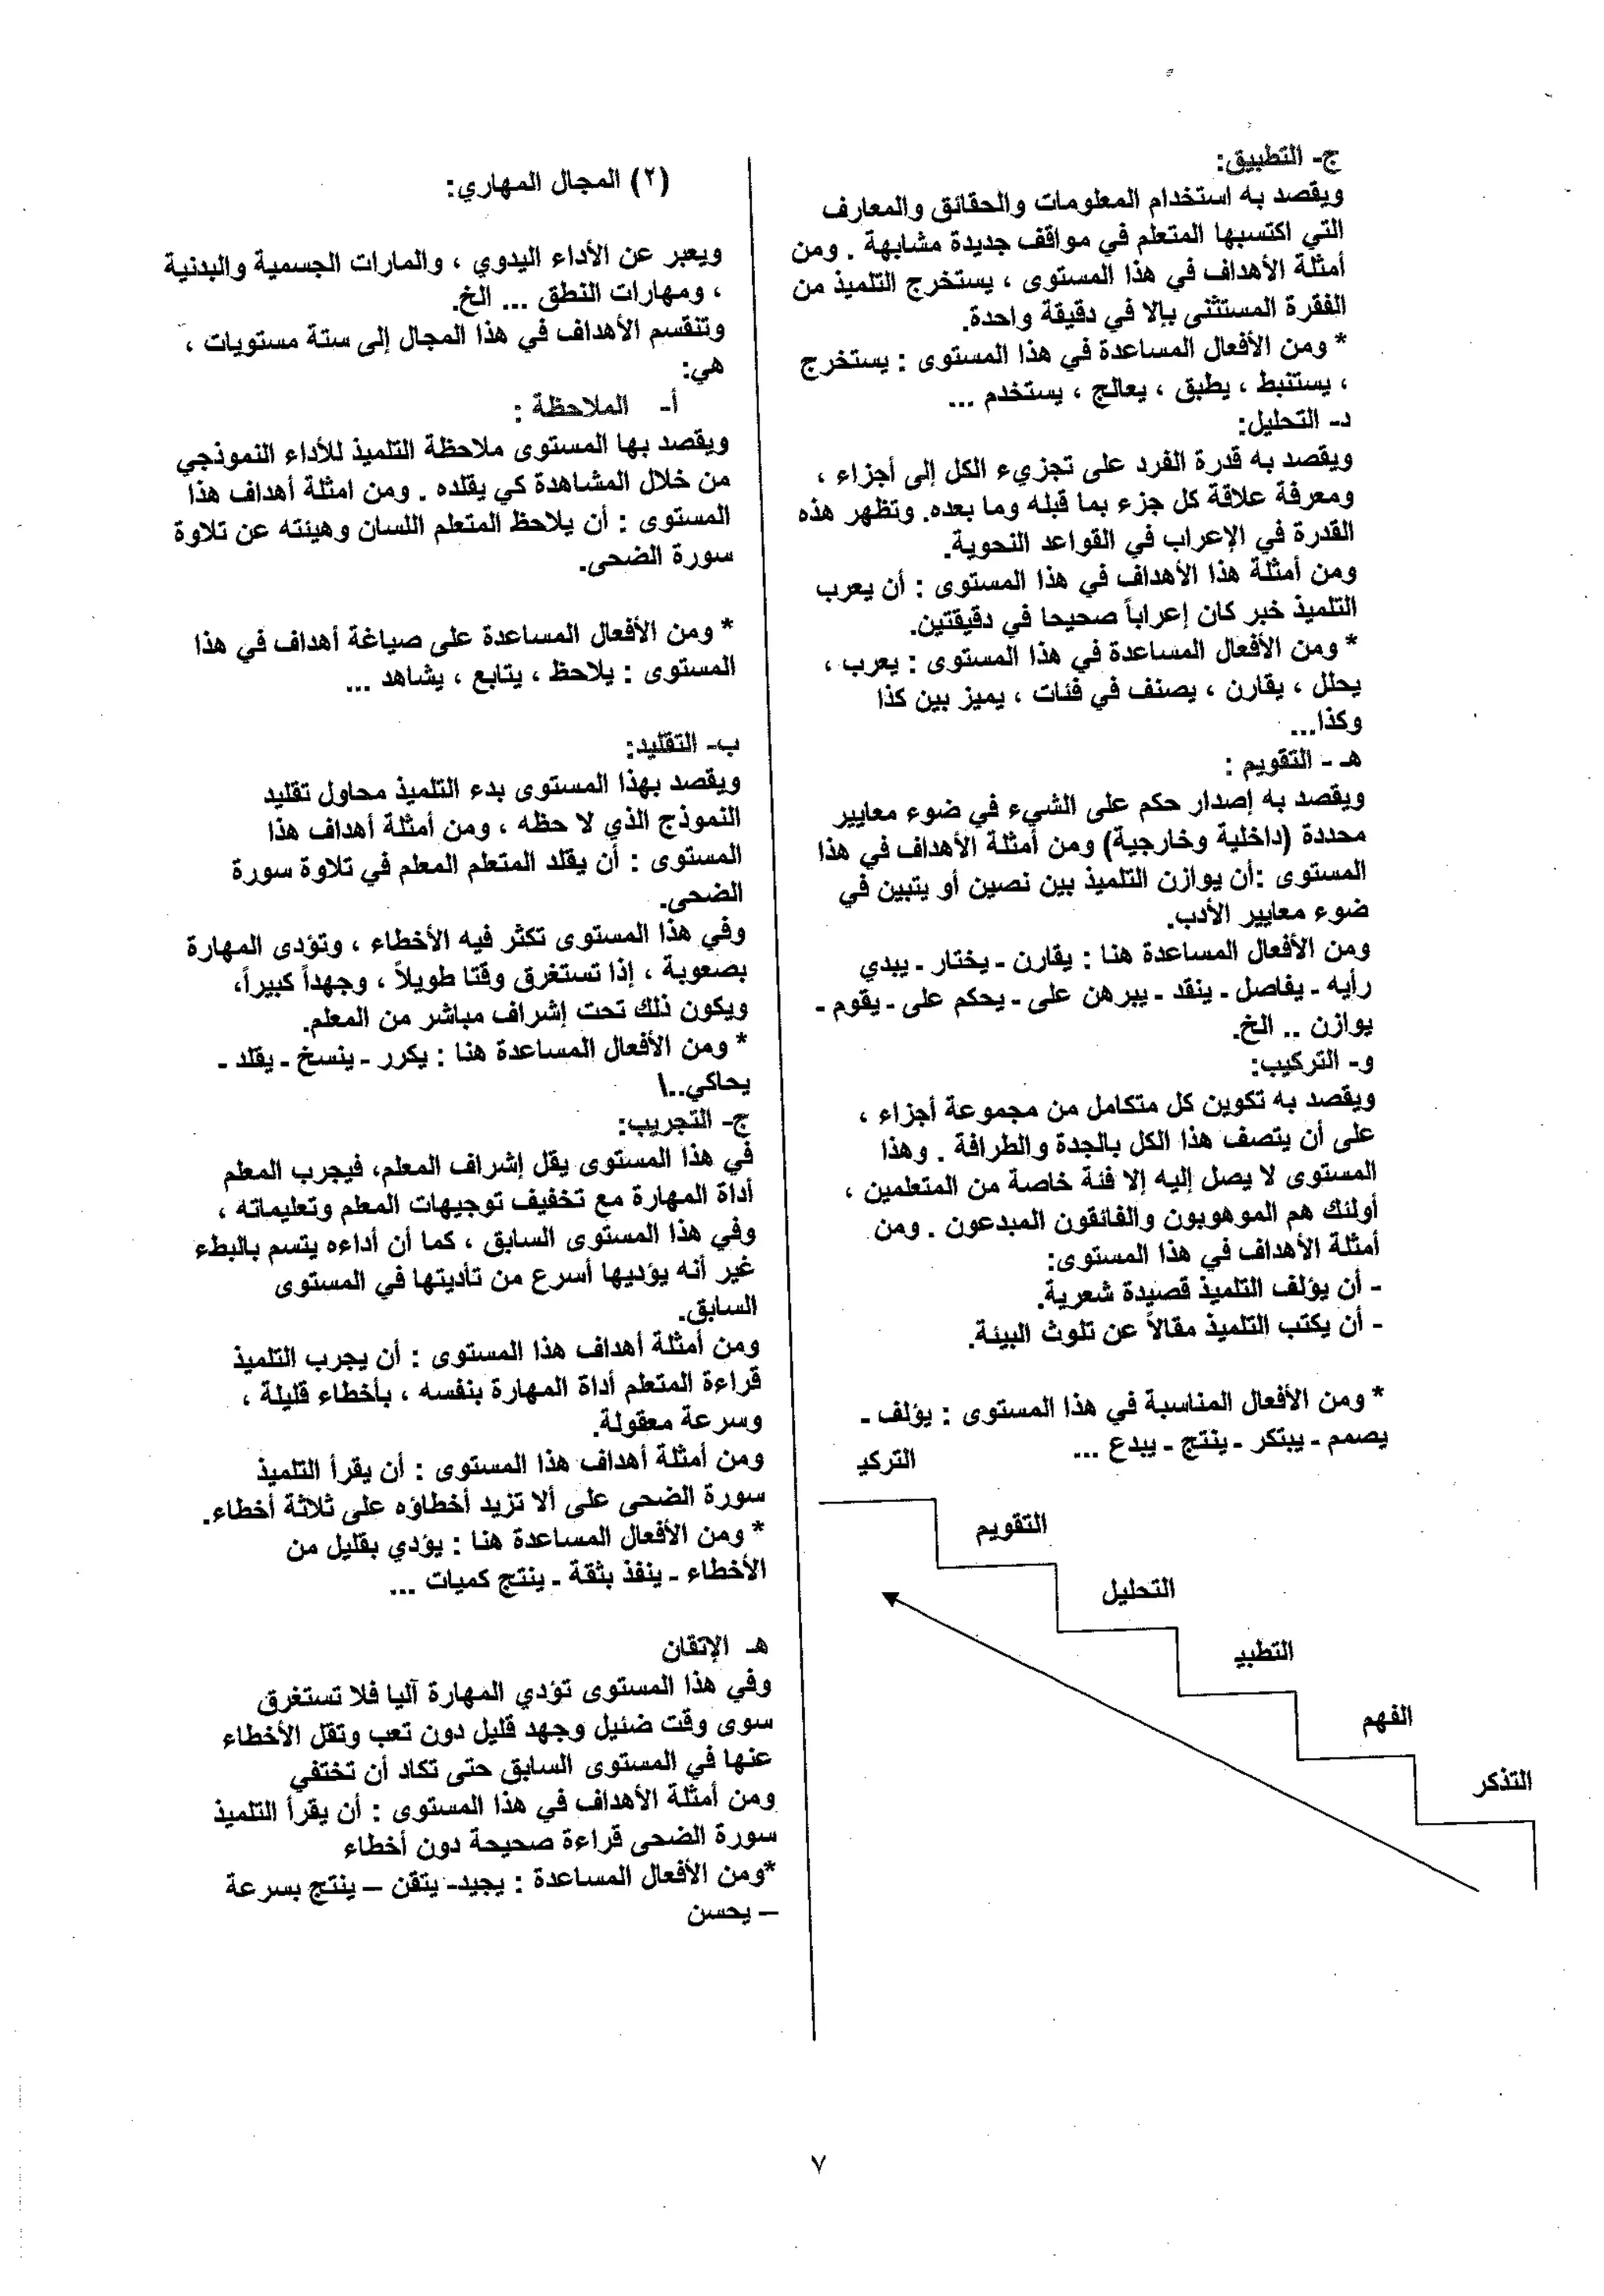 ج- التطبيق:
ويقصد به استخدام المعلومات والحقائق والمعارف
التي اكتسبها المتعلم في مواقف جديدة مشابهة . ومن
أمثلة الأهداف في هذا المستوى ، يستخرج التلميذ من
الفقرة المستثنى بإلا في دقيقة واحدة.
* ومن الأفعال المساعدة في هذا المستوى : يستخرج
، يستنبط ، يطبق ، يعالج ، يستخدم ...
د- التحليل:
ويقصد به قدرة الفرد على تجزيء الكل إلى أجزاء ،
ومعرفة علاقة كل جزء بما قبله وما بعده. وتظهر هذه
القدرة في الإعراب في القواعد النحوية.
ومن أمثلة هذا الأهداف في هذا المستوى : أن يعرب
التلميذ خبر كان إعراباً صحيحا في دقيقتين.
* ومن الأفعال المساعدة في هذا المستوى : يعرب ،
يحلل ، يقارن ، يصنف في فئات ، يميز بين كذا
وكذا...
هـ - التقويم :
ويقصد به إصدار حكم على الشيء في ضوء معايير
محددة (داخلية وخارجية) ومن أمثلة الأهداف في هذا
المستوى :أن يوازن التلميذ بين نصين أو يتبين في
ضوء معايير الأدب.
ومن الأفعال المساعدة هنا : يقارن - يختار - يبدي
رأيه - يفاصل - ينقد - يبرهن على - يحكم على - يقوم -
يوازن .. الخ.
و- التركيب:
ويقصد به تكوين كل متكامل من مجموعة أجزاء ،
على أن يتصف هذا الكل بالجدة والطرافة . وهذا
المستوى لا يصل إليه إلا فئة خاصة من المتعلمين ،
أولئك هم الموهوبون والفائقون المبدعون . ومن
أمثلة الأهداف في هذا المستوى:
- أن يؤلف التلميذ قصيدة شعرية.
- أن يكتب التلميذ مقالاً عن تلوث البيئة.
* ومن الأفعال المناسبة في هذا المستوى : يؤلف -
يصمم - يبتكر - ينتج - يبدع ...
التركي
التقويم
التحليل
التطبي
الفهم
التذكر
(٢) المجال المهاري:
ويعبر عن الأداء اليدوي ، والمارات الجسمية والبدنية
، ومهارات النطق ... الخ.
وتنقسم الأهداف في هذا المجال إلى ستة مستويات ،
هي:
أ- الملاحظة :
ويقصد بها المستوى ملاحظة التلميذ للأداء النموذجي
من خلال المشاهدة كي يقلده . ومن امثلة أهداف هذا
المستوى : أن يلاحظ المتعلم اللسان وهيئته عن تلاوة
سورة الضحى.
* ومن الأفعال المساعدة على صياغة أهداف في هذا
المستوى : يلاحظ ، يتابع ، يشاهد ...
ب- التقليد:
ويقصد بهذا المستوى بدء التلميذ محاول تقليد
النموذج الذي لا حظه ، ومن أمثلة أهداف هذا
المستوى : أن يقلد المتعلم المعلم في تلاوة سورة
الضحى.
وفي هذا المستوى تكثر فيه الأخطاء ، وتؤدى المهارة
بصعوبة ، إذا تستغرق وقتا طويلاً ، وجهداً كبيراً،
ويكون ذلك تحت إشراف مباشر من المعلم.
* ومن الأفعال المساعدة هنا : يكرر - ينسخ - يقلد -
يحاكي..\
ج- التجريب:
في هذا المستوى يقل إشراف المعلم، فيجرب المعلم
أداة المهارة مع تخفيف توجيهات المعلم وتعليماته ،
وفي هذا المستوى السابق ، كما أن أداءه يتسم بالبطء
غير أنه يؤديها أسرع من تأديتها في المستوى
السابق.
ومن أمثلة أهداف هذا المستوى : أن يجرب التلميذ
قراءة المتعلم أداة المهارة بنفسه ، بأخطاء قليلة ،
وسرعة معقولة.
ومن أمثلة أهداف هذا المستوى : أن يقرأ التلميذ
سورة الضحى على ألا تزيد أخطاؤه على ثلاثة أخطاء.
* ومن الأفعال المساعدة هنا : يؤدي بقليل من
الأخطاء - ينفذ بثقة - ينتج كميات ...
هـ الإتقان
وفي هذا المستوى تؤدي المهارة آليا فلا تستغرق
سوى وقت ضئيل وجهد قليل دون تعب وتقل الأخطاء
عنها في المستوى السابق حتى تكاد أن تختفي
ومن أمثلة الأهداف في هذا المستوى : أن يقرأ التلميذ
سورة الضحى قراءة صحيحة دون أخطاء
*ومن الأفعال المساعدة : يجيد- يتقن – ينتج بسرعة
– يحسن
٧